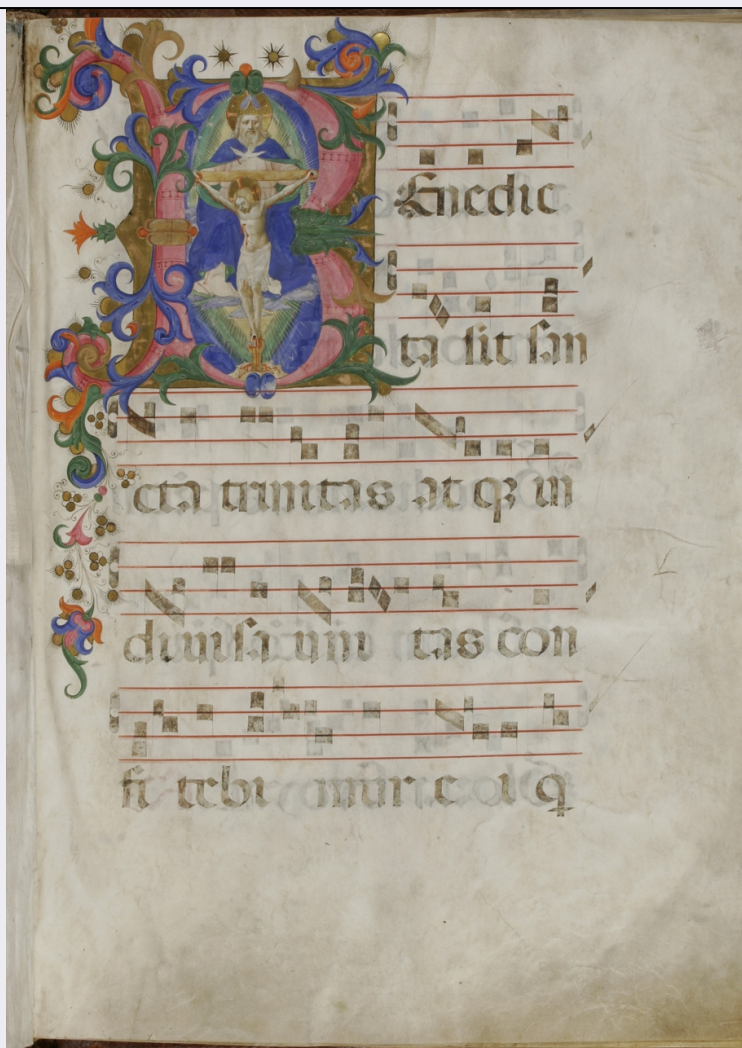 BEnedic
ta sit san
cta trinitas at qꝫ in
diuisa uni tas con
fi tebi mur e i q